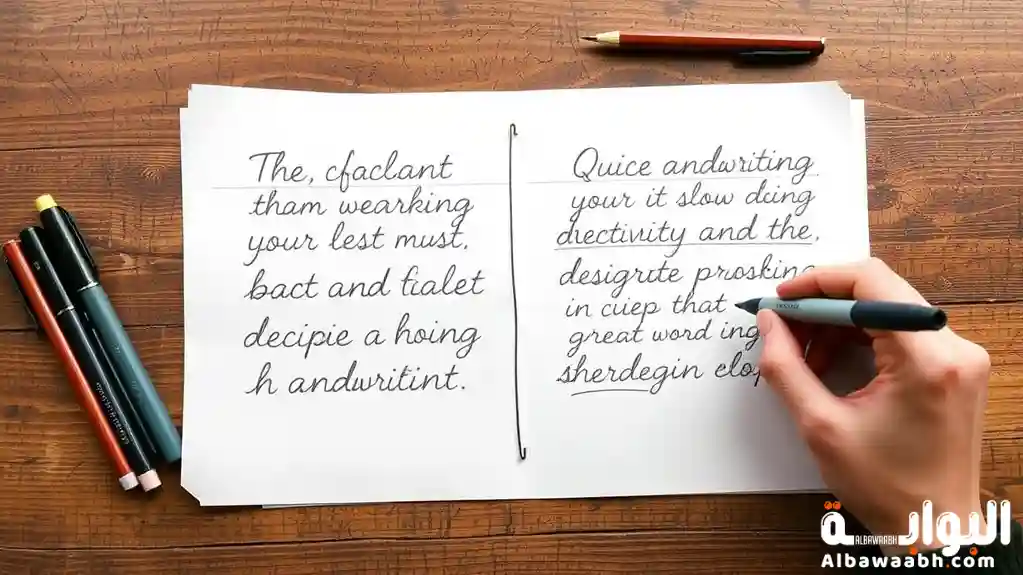 The, cfaclant
tham wearking
your lest must,
bact and fialet
decipie a hoing
h andwritint.
Quice andwriting
your it slow dcing
drectivity and the,
designte prosking
in cuep that
great word ing
sherdegin elop
البوابة
ALBAWAABH
Albawaabh.com